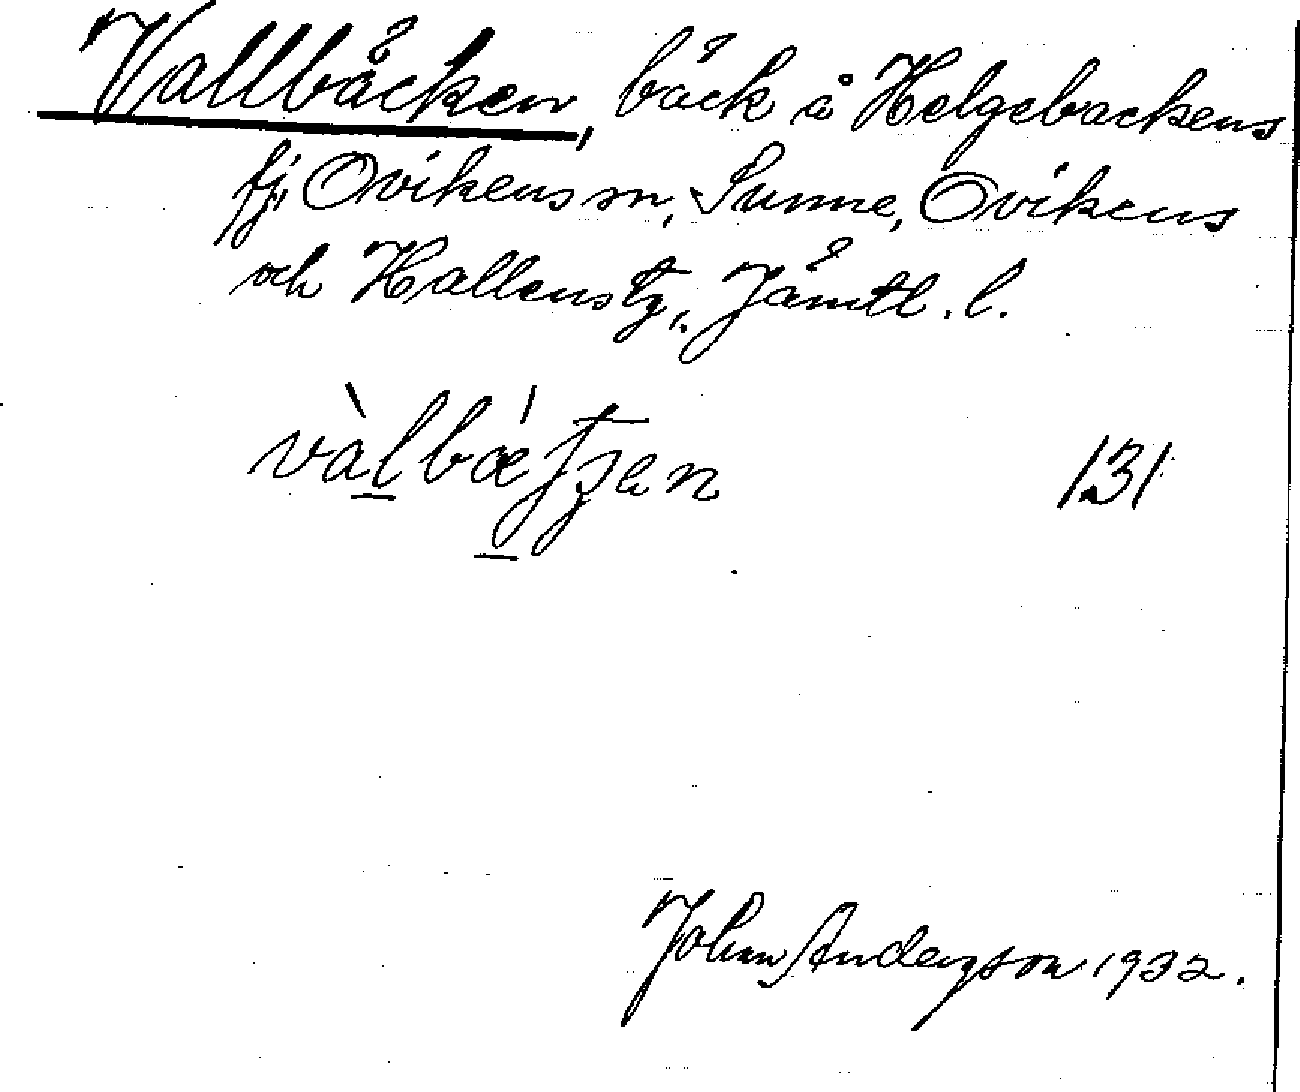 Vallbäcken, bäck å Helgebackens
fj. Ovikens sn, Sunne, Ovikens
och Hallens tg, Jämtl. l.
131
John Anderson 1932.